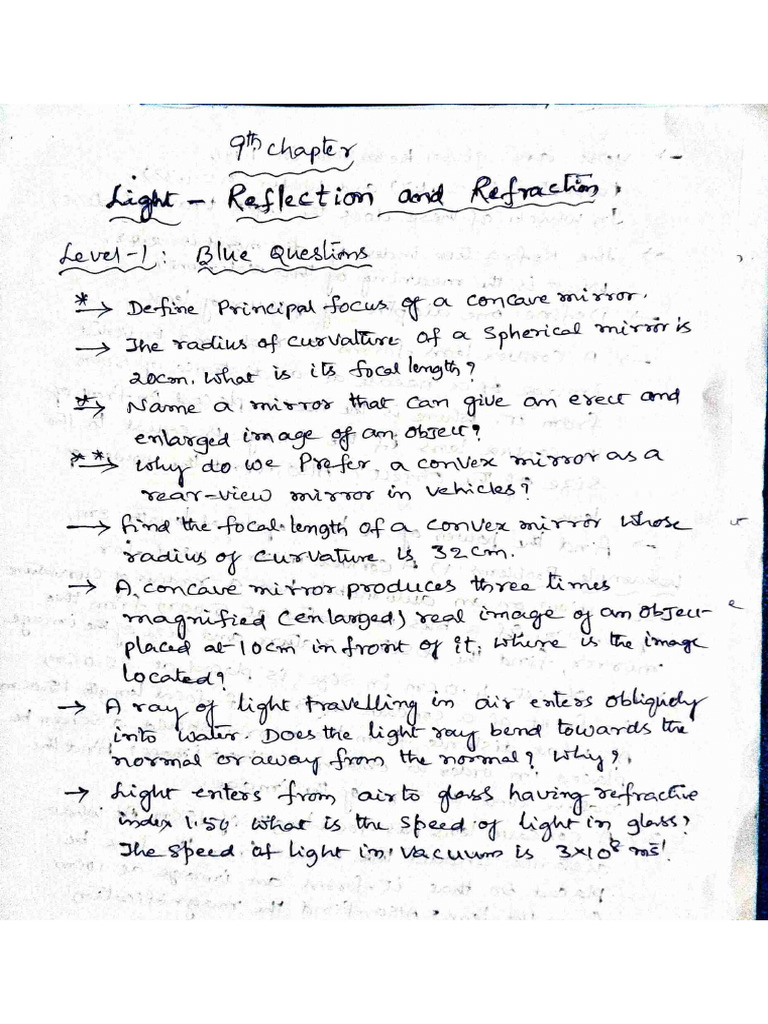 9th chapter
Light - Reflection and Refraction.
Level-1: Blue Questions
* → Define Principal focus of a concave mirror.
→ The radius of curvature of a spherical mirror is
20cm. What is its focal length?
* → Name a mirror that can give an erect and
enlarged image of an object?
** → Why do we Prefer a convex mirror as a
rear-view mirror in vehicles?
→ find the focal length of a convex mirror whose
radius of curvature is 32cm.
→ A concave mirror produces three times
magnified (enlarged) real image of an object
placed at 10cm in front of it. Where is the image
located?
→ A ray of light travelling in air enters obliquely
into water. Does the light ray bend towards the
normal or away from the normal? Why?
→ Light enters from air to glass having refractive
index 1.50. What is the speed of light in glass?
The speed of light in vacuum is 3×10⁸ ms⁻¹.